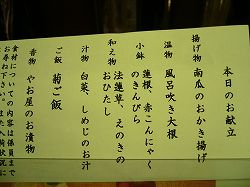 本日のお献立
揚げ物 南瓜のおかき揚げ
温物 風呂吹き大根
小鉢 蓮根、赤こんにゃく
のきんぴら
和え物 法蓮草、えのきの
おひたし
汁物 白菜、しめじのお汁
ご飯 菊ご飯
香物 やお屋のお漬物
食材についての内容は係員まで
お尋ね下さい。